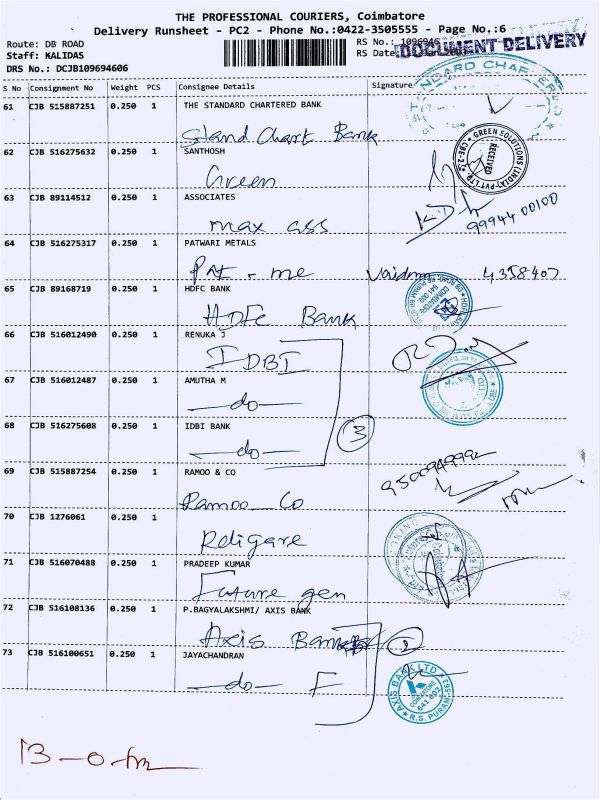 THE PROFESSIONAL COURIERS, Coimbatore
Delivery Runsheet - PC2 - Phone No.:0422-3505555 - Page No.:6
Route: DB ROAD
Staff: KALIDAS
DRS No.: DCJB109694606
RS No.: 1096946
RS Date
DOCUMENT DELIVERY
S No Consignment No Weight PCS Consignee Details Signature
61 CJB 515887251 0.250 1 THE STANDARD CHARTERED BANK
Stand Chart Bank
STANDARD CHARTERED
62 CJB 516275632 0.250 1 SANTHOSH
Green
GREEN SOLUTIONS (INDIA) PVT LTD
RECEIVED
63 CJB 89114512 0.250 1 ASSOCIATES
max ass
99944 00100
64 CJB 516275317 0.250 1 PATWARI METALS
Pat - me 4358407
65 CJB 89168719 0.250 1 HDFC BANK
HDFC Bank
66 CJB 516012490 0.250 1 RENUKA J
IDBI
67 CJB 516012487 0.250 1 AMUTHA M
—do—
68 CJB 516275608 0.250 1 IDBI BANK
—do—
3
69 CJB 515887254 0.250 1 RAMOO & CO
Ramoo Co
70 CJB 1276061 0.250 1
Religare
71 CJB 516070488 0.250 1 PRADEEP KUMAR
Future gen
72 CJB 516108136 0.250 1 P.BAGYALAKSHMI/ AXIS BANK
Axis Bank
2
73 CJB 516100651 0.250 1 JAYACHANDRAN
—do— F
AXIS BANK LTD
COIMBATORE
641 002
R.S. PURAM